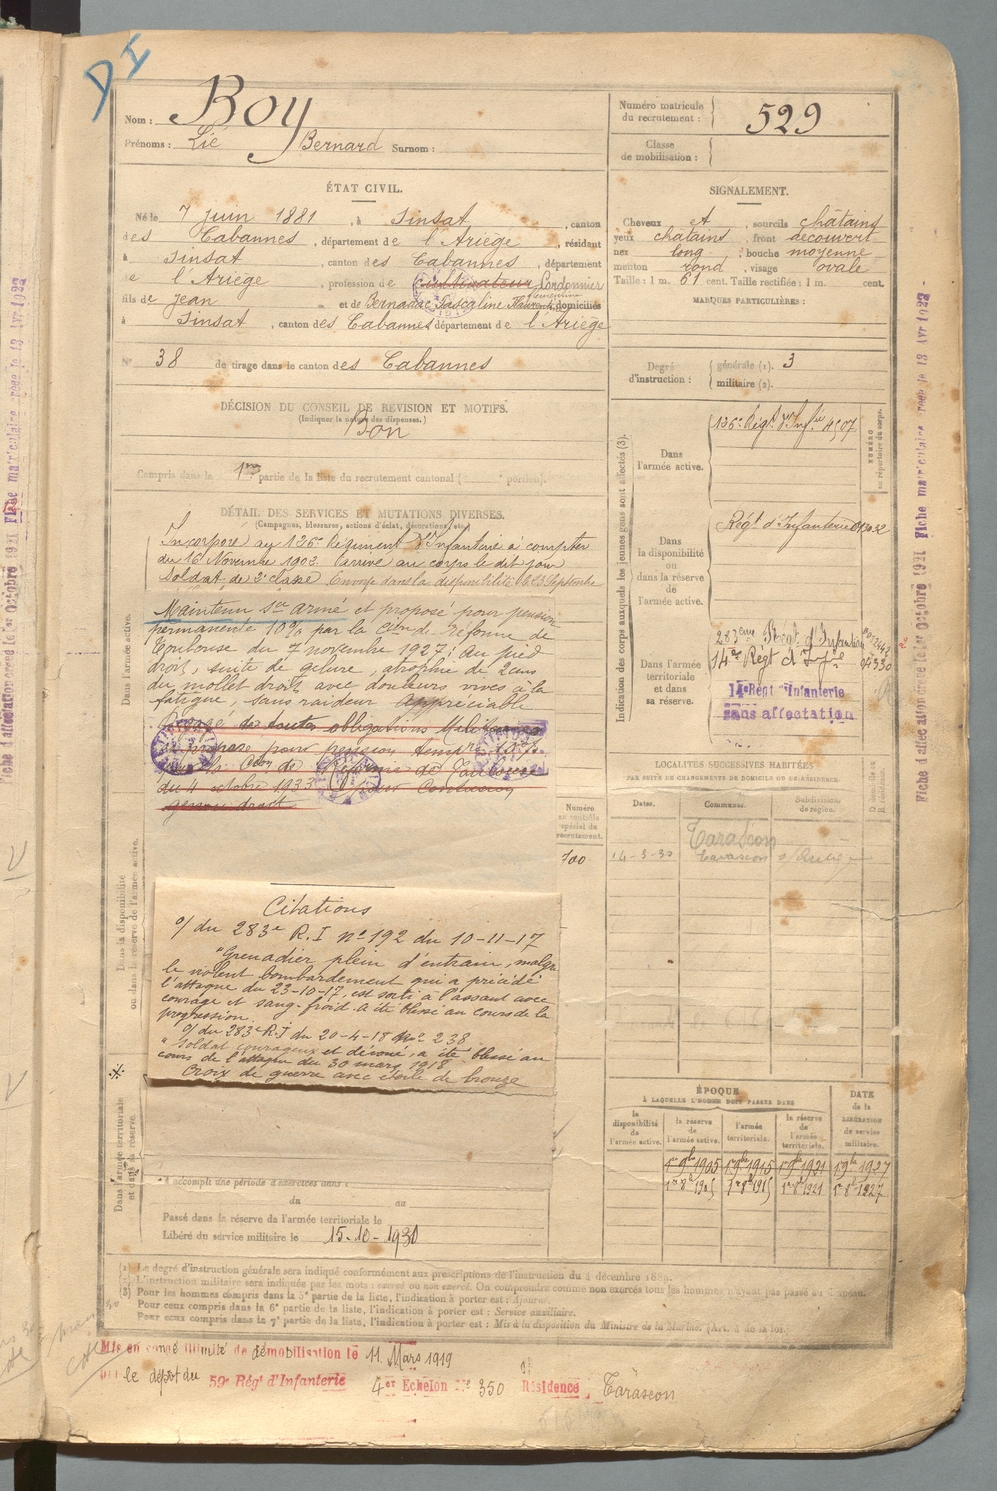 DI
Nom : Boy
Prénoms : Lié Bernard Surnom :
Numéro matricule du recrutement : 529
Classe de mobilisation :
ÉTAT CIVIL.
Né le 7 juin 1881, à Sinsat, canton
des Cabannes, département de l'Ariège, résidant
à Sinsat, canton des Cabannes, département
de l'Ariège, profession de cultivateur Cordonnier
fils de Jean et de Bernadac Pascaline Clémentine domiciliés
à Sinsat, canton des Cabannes département de l'Ariège
N° 38 de tirage dans le canton des Cabannes
SIGNALEMENT.
Cheveux et sourcils châtains
yeux châtains, front découvert
nez long, bouche moyenne
menton rond, visage ovale
Taille : 1 m. 61 cent. Taille rectifiée : 1 m. cent.
MARQUES PARTICULIÈRES :
Degré d'instruction : générale (1). 3
militaire (2).
DÉCISION DU CONSEIL DE REVISION ET MOTIFS.
(Indiquer la nature des dispenses.)
Bon
Compris dans la 1re partie de la liste du recrutement cantonal ( portion).
DÉTAIL DES SERVICES ET MUTATIONS DIVERSES.
(Campagnes, blessures, actions d'éclat, décorations, etc.)
Incorporé au 126e Régiment d'Infanterie à compter
du 16 Novembre 1902. Arrivé au corps le dit jour
Soldat de 2e classe. Envoyé dans la disponibilité le 23 Septembre
Maintenu Sce armé et proposé pour pension
permanente 10% par la Cion de Réforme de
Toulouse du 7 novembre 1927 : Au pied
droit, suite de gelure, atrophie de 2 cms
du mollet droit avec douleurs vives à la
fatigue, sans raideur appréciable
Dégagé de toutes obligations Militaires
proposé pour pension temp. 10%
par la Cion de Réforme de Toulouse
du 4 octobre 1933
genou droit
Dans l'armée active.
Dans la disponibilité
ou dans la réserve de l'armée active.
Dans l'armée territoriale
et dans sa réserve.
Citations
O/ du 283e R.I n° 192 du 10-11-17
"Grenadier plein d'entrain, malgré
le violent bombardement qui a précédé
l'attaque du 23-10-17, est sorti à l'assaut avec
courage et sang-froid. A été blessé au cours de la
progression.
O/ du 283e R.I du 20-4-18 No 238
"Soldat courageux et dévoué, a été blessé au
cours de l'attaque du 30 mars 1918
Croix de guerre avec étoile de bronze
A accompli une période d'exercices dans
du au
Passé dans la réserve de l'armée territoriale le
Libéré du service militaire le 15-10-1930
Indication des corps auxquels les jeunes gens sont affectés (3).
NUMÉRO au répertoire du corps.
Dans l'armée active. 126e Régt d'Infie 4507
Dans la disponibilité ou dans la réserve de l'armée active. Régt d'Infanterie
Dans l'armée territoriale et dans sa réserve.
283ème Régt d'Infanterie
14e Régt d'Infie
14e Régt d'Infanterie
sans affectation
LOCALITÉS SUCCESSIVES HABITÉES
PAR SUITE DE CHANGEMENTS DE DOMICILE OU DE RÉSIDENCE.
Numéro au contrôle spécial du recrutement.
Dates. Communes. Subdivision de région. D. domicile ou R. résidence.
700
Tarascon
14-3-30 Tarascon s/ Ariège
ÉPOQUE
À LAQUELLE L'HOMME DOIT PASSER DANS
DATE de la LIBÉRATION du service militaire.
la disponibilité de l'armée active.
la réserve de l'armée active.
l'armée territoriale.
la réserve de l'armée territoriale.
1er 9bre 1905 1er 9bre 1915 1er 9bre 1921 1er 9bre 1927
1er 8bre 1905 1er 8bre 1915 1er 8bre 1921 1er 8bre 1927
(1) Le degré d'instruction générale sera indiqué conformément aux prescriptions de l'instruction du 4 décembre 1889.
(2) L'instruction militaire sera indiquée par les mots : exercé ou non exercé. On comprendra comme non exercés tous les hommes n'ayant pas passé au drapeau.
(3) Pour les hommes compris dans la 5e partie de la liste, l'indication à porter est : Ajourné.
Pour ceux compris dans la 6e partie de la liste, l'indication à porter est : Service auxiliaire.
Pour ceux compris dans la 7e partie de la liste, l'indication à porter est : Mis à la disposition du Ministre de la Marine. (Art. 4 de la loi
Mis en congé illimité de démobilisation le 11 Mars 1919
par le dépôt du 59e Régt d'Infanterie 4er Echelon N° 350 Résidence Tarascon
Fiche d'affectation créée le 1er Octobre 1921 Fiche matriculaire créée le 13 Avr 1922
Fiche d'affectation créée le 1er Octobre 1921 Fiche matriculaire créée le 13 Avr 1922